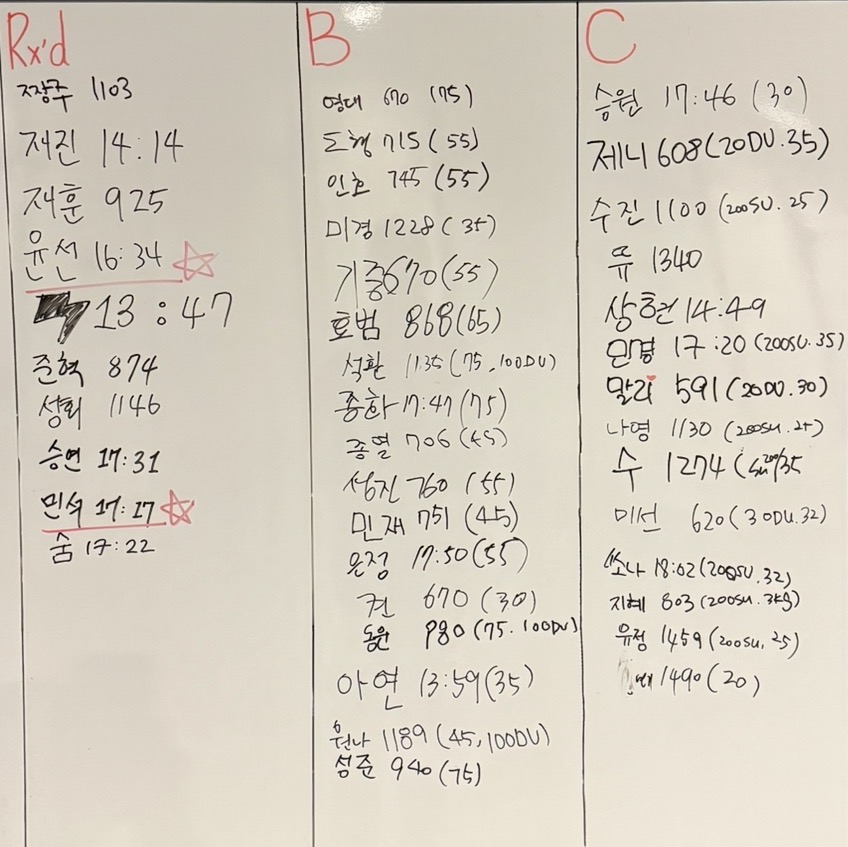 Rx'd
짱주 1103
저진 14:14
재훈 925
윤선 16:34
13:47
준혁 874
성회 1146
승연 17:31
민석 17:17
숨 17:22
B
영대 670 (75)
도형 715 (55)
인호 745 (55)
미경 1228 (35)
기중 670 (55)
효범 868 (65)
석환 1135 (75, 100DU)
종화 17:47 (75)
종열 706 (45)
성진 760 (55)
민재 751 (45)
은정 17:50 (55)
권 670 (30)
동원 980 (75. 100DU)
아연 13:59 (35)
한나 1189 (45, 100DU)
성준 940 (75)
C
승원 17:46 (30)
제니 608 (20DU. 35)
수진 1100 (200SU. 25)
뜌 1340
상현 14:49
민경 17:20 (200SU. 35)
말리 591 (20DU. 30)
나영 1130 (200SU. 25)
수 1274 (SU 200/35
미선 620 (30DU. 32)
쏘나 18:02 (200SU. 32)
지혜 803 (200SU.
유정 1459 (200SU. 25)
1490 (20)